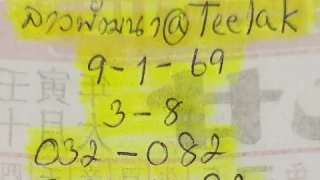 ลาวพัฒนา@Teelak
9-1-69
3-8
032-082